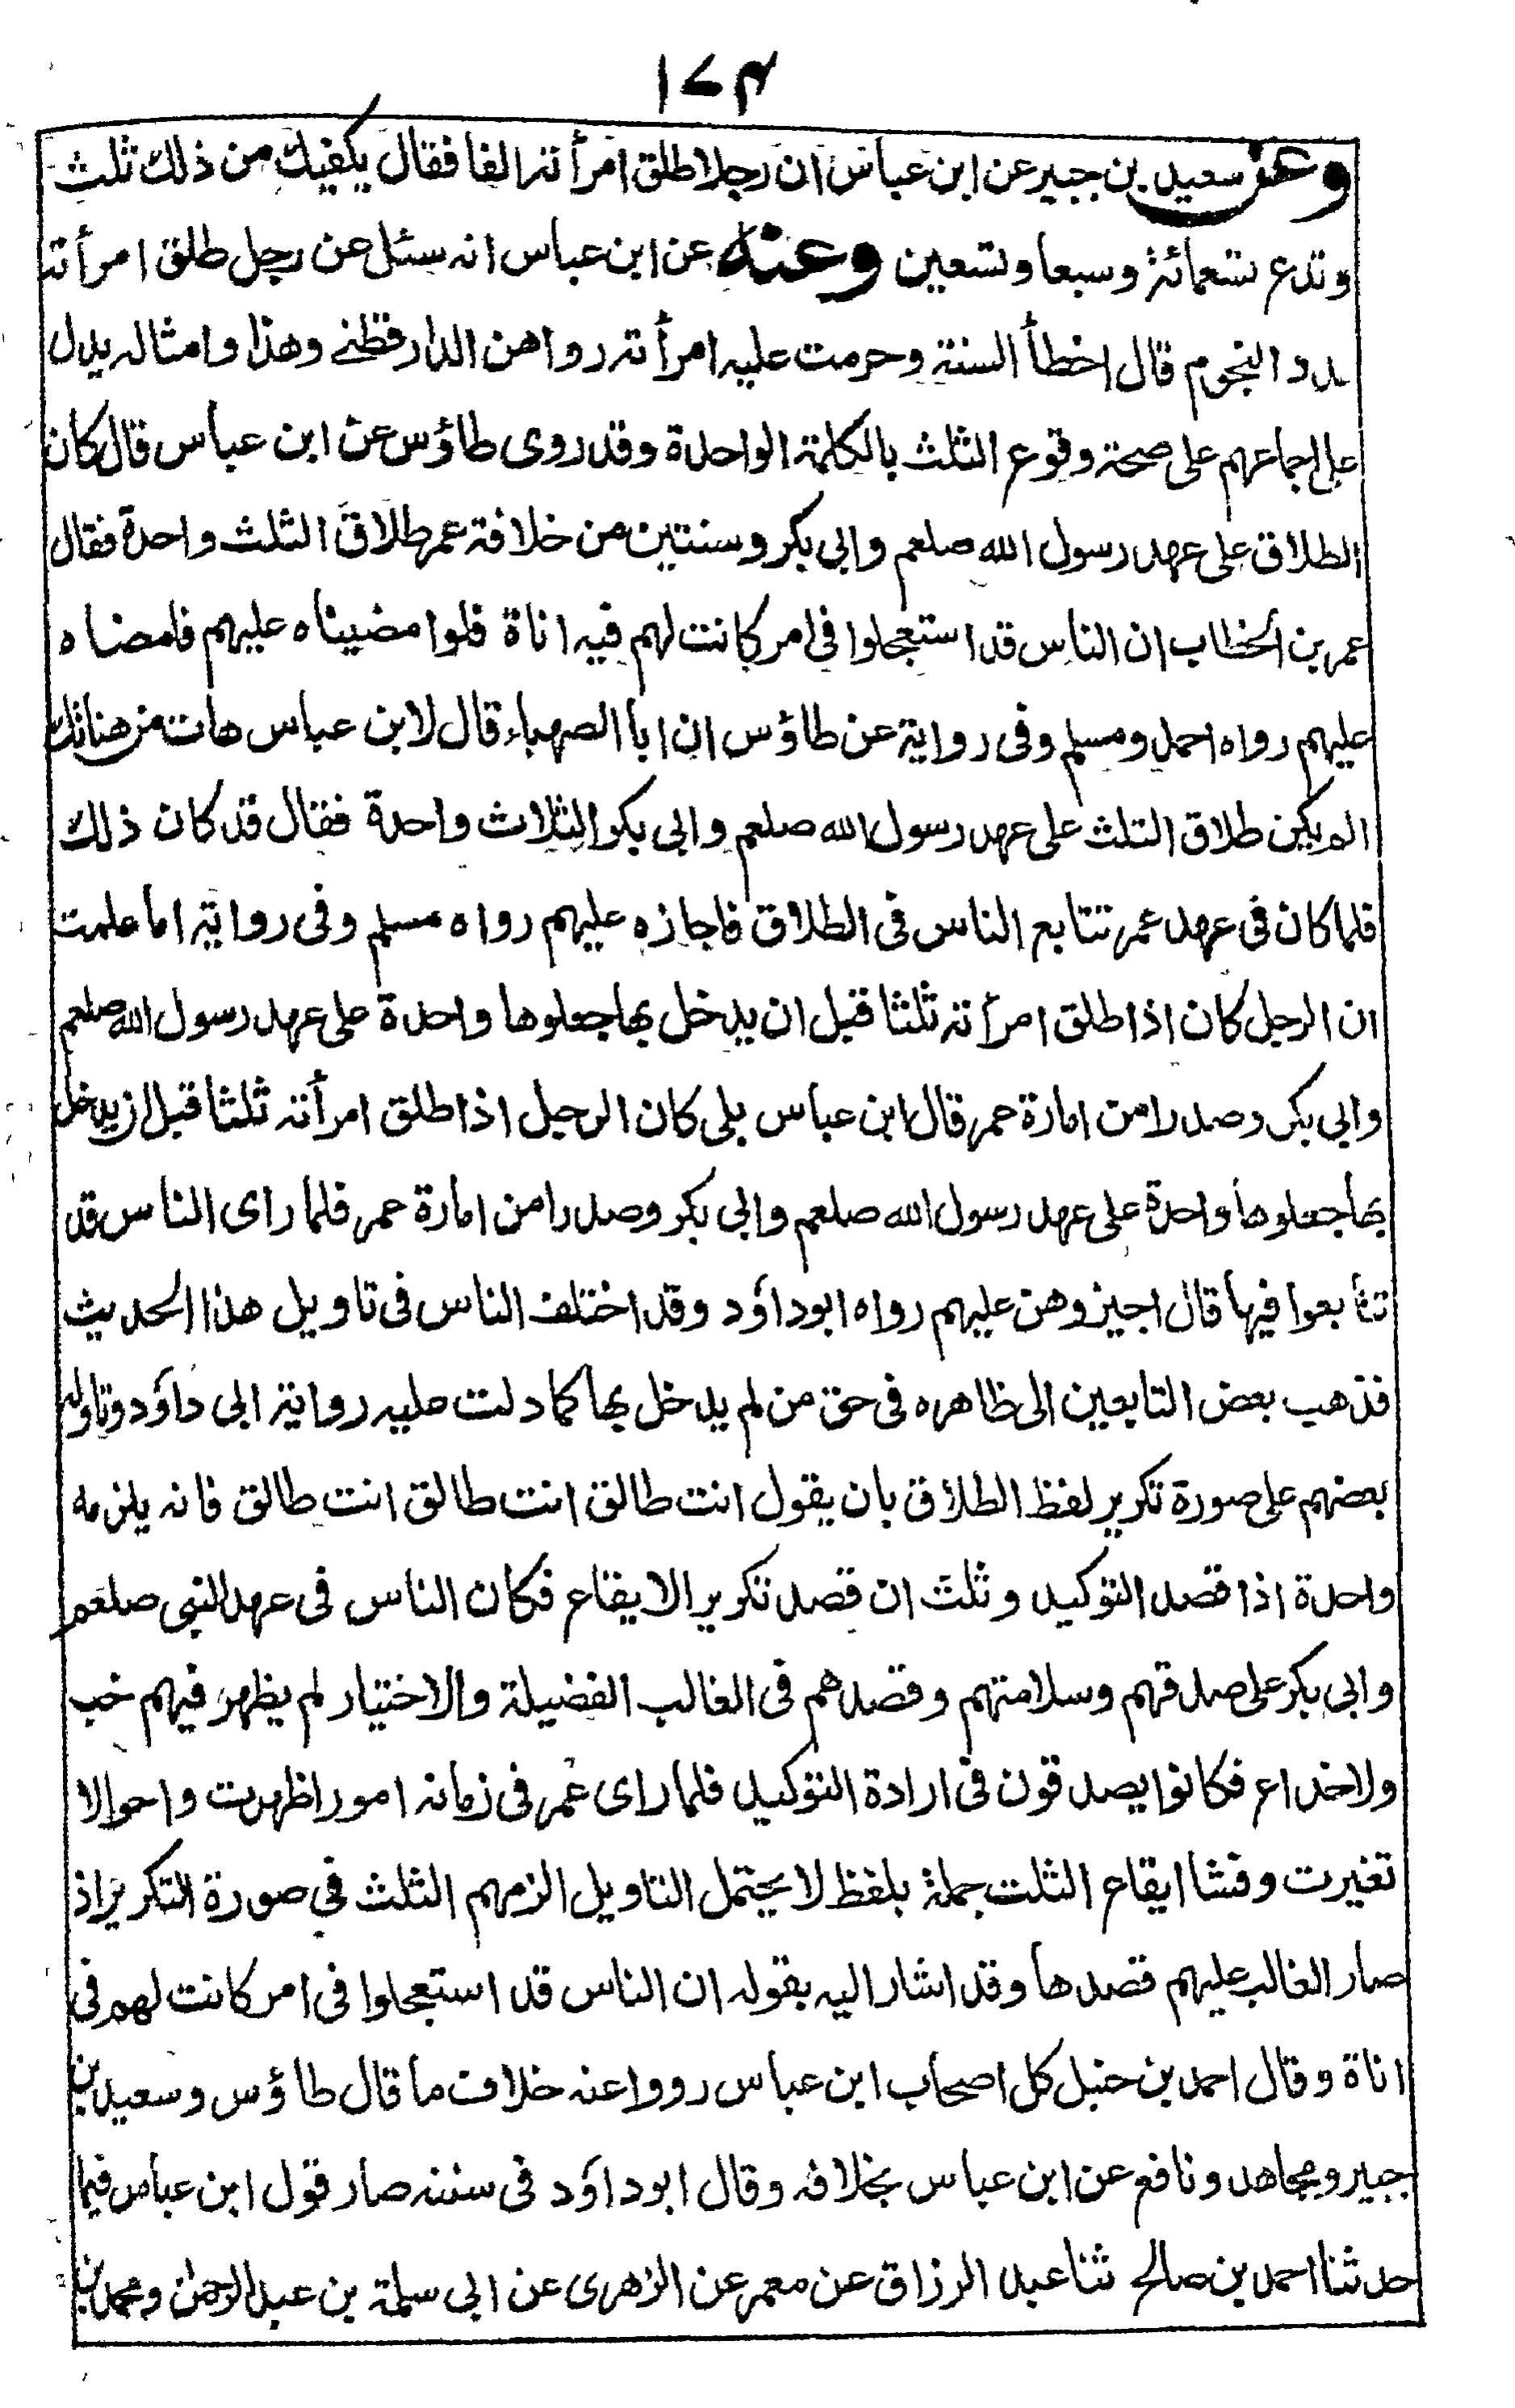 ۱۷۴
وعن سعيد بن جبير عن ابن عباس ان رجلا طلق امرأته الفا فقال يكفيك من ذلك ثلث
وتدع تسعمائة وسبعا وتسعين وعنه عن ابن عباس انه سئل عن رجل طلق امرأته
عدد النجوم قال اخطأ السنة وحرمت عليه امرأته رواهن الدارقطنے وهذا وامثاله يدل
على اجماعهم على صحة وقوع الثلث بالكلمة الواحدة وقد روى طاؤس عن ابن عباس قال كان
الطلاق على عهد رسول الله صلعم وابى بكر وسنتين من خلافة عمر طلاق الثلث واحدة فقال
عمر بن الخطاب ان الناس قد استعجلوا فى امر كانت لهم فيه اناة فلوا مضيناه عليهم فامضاه
عليهم رواه احمد ومسلم وفى رواية عن طاؤس ان ابا الصهباء قال لابن عباس هات من هناتك
الم يكن طلاق الثلث على عهد رسول الله صلعم وابى بكر الثلاث واحدة فقال قد كان ذلك
فلما كان فى عهد عمر تتابع الناس فى الطلاق فاجازه عليهم رواه مسلم وفى رواية اما علمت
ان الرجل كان اذا طلق امرأته ثلثا قبل ان يدخل بها جعلوها واحدة على عهد رسول الله صلعم
وابى بكر وصدرا من امارة عمر قال ابن عباس بلى كان الرجل اذا طلق امرأته ثلثا قبل ان يدخل
بها جعلوها واحدة على عهد رسول الله صلعم وابى بكر وصدرا من امارة عمر فلما راى الناس قد
تتابعوا فيها قال اجيزوهن عليهم رواه ابوداؤد وقد اختلف الناس فى تاويل هذا الحديث
فذهب بعض التابعين الى ظاهره فى حق من لم يدخل بها كما دلت عليه رواية ابى داؤد وتاوله
بعضهم على صورة تكرير لفظ الطلاق بان يقول انت طالق انت طالق انت طالق فانه يلزمه
واحدة اذا قصد التوكيد وثلث ان قصد تكرير الايقاع فكان الناس فى عهد النبى صلعم
وابى بكر على صدقهم وسلامتهم وقصدهم فى الغالب الفضيلة والاختيار لم يظهر فيهم خب
ولا خداع فكانوا يصدقون فى ارادة التوكيد فلما راى عمر فى زمانه امورا ظهرت واحوالا
تغيرت وفشا ايقاع الثلث جملة بلفظ لا يحتمل التاويل الزمهم الثلث فى صورة التكرير اذ
صار الغالب عليهم قصدها وقد اشار اليه بقوله ان الناس قد استعجلوا فى امر كانت لهم فى
اناة وقال احمد بن حنبل كل اصحاب ابن عباس رووا عنه خلاف ما قال طاؤس وسعيد بن
جبير ومجاهد ونافع عن ابن عباس بخلافه وقال ابوداؤد فى سننه صار قول ابن عباس فيما
حدثنا احمد بن صالح ثنا عبد الرزاق عن معمر عن الزهرى عن ابى سلمة بن عبد الرحمن ومحمد بن